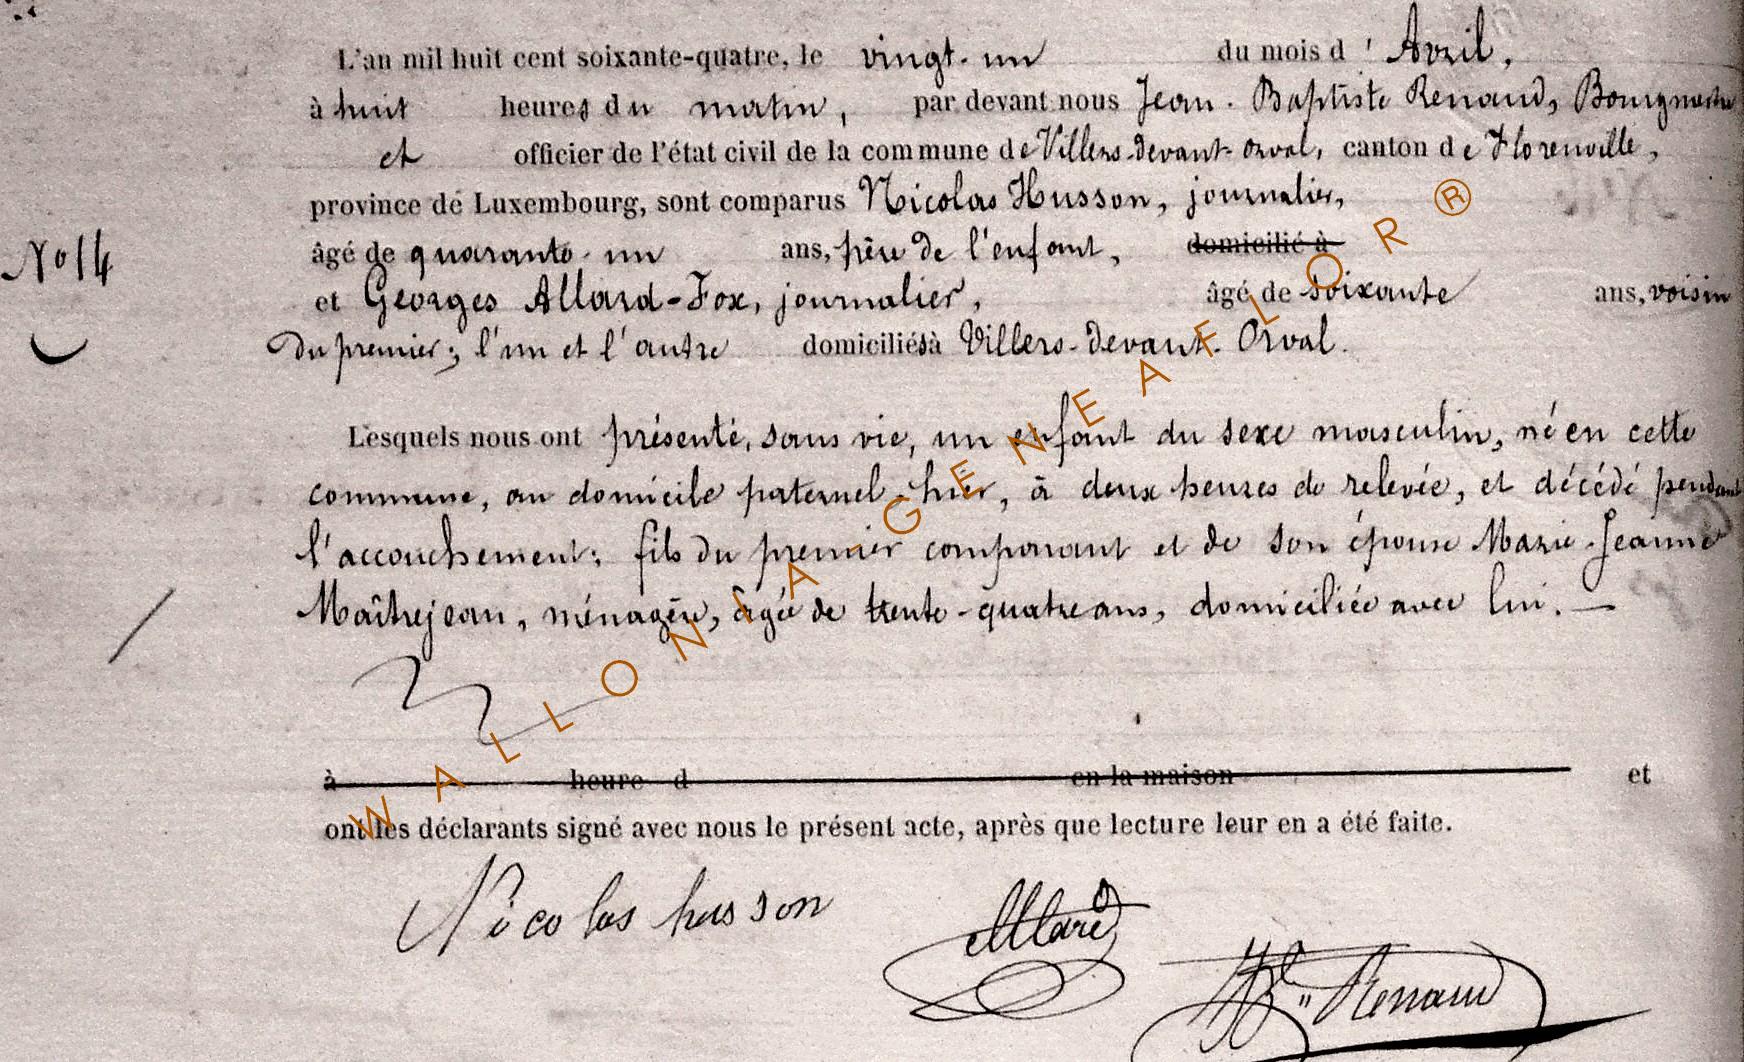 L'an mil huit cent soixante-quatre, le vingt-un du mois d'Avril,
à huit heures du matin, par devant nous Jean-Baptiste Renaud, Bourgmestre
et officier de l'état civil de la commune de Villers-devant-Orval, canton de Florenville,
province de Luxembourg, sont comparus Nicolas Husson, journalier,
No 14
âgé de quarante-un ans, père de l'enfant, domicilié à
et Georges Allard-Fox, journalier, âgé de soixante ans, voisin
du premier; l'un et l'autre domiciliés à Villers-devant-Orval.
Lesquels nous ont présenté, sans vie, un enfant du sexe masculin, né en cette
commune, au domicile paternel hier, à deux heures de relevée, et décédé pendant
l'accouchement; fils du premier comparant et de son épouse Marie-Jeanne
Maîtrejean, ménagère, âgée de trente-quatre ans, domiciliée avec lui.
à heure d en la maison et
ont les déclarants signé avec nous le présent acte, après que lecture leur en a été faite.
Nicolas husson
Allard
Renaud
WALLONIA - GENEAFLOR ®